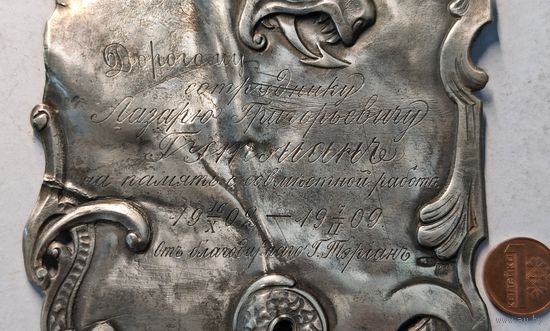 Дорогому
сотруднику
Лазарю Григорьевичу
Гутманъ
на память о совмѣстной работѣ
19 16/X 02 — 19 7/II 09
Отъ благодарнаго Г. Перланъ
1
КОПЕЙКА